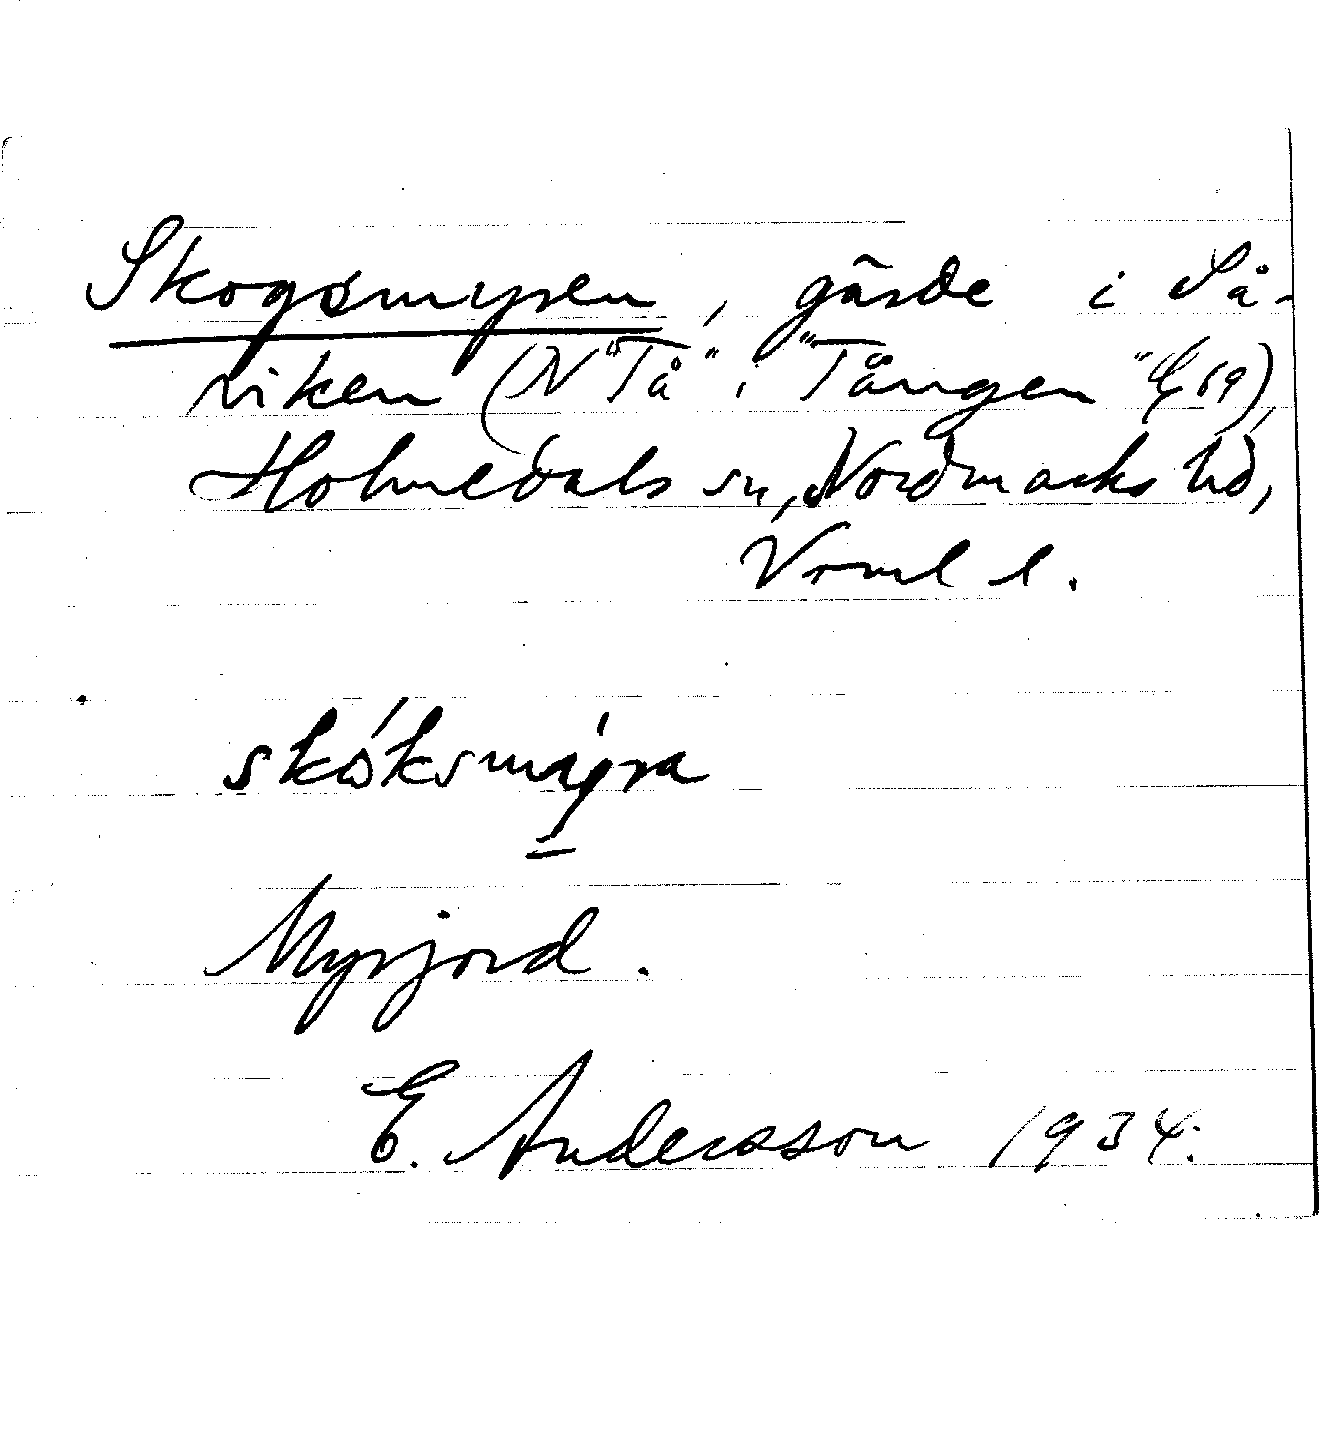 Skogsmyren, gärde i Så-
viken (N "Tå" i "Tången" E 19),
Holmedals sn, Nordmarks hd,
Vrml l.
skóksmýra
Myrjord.
E. Andersson 1934.